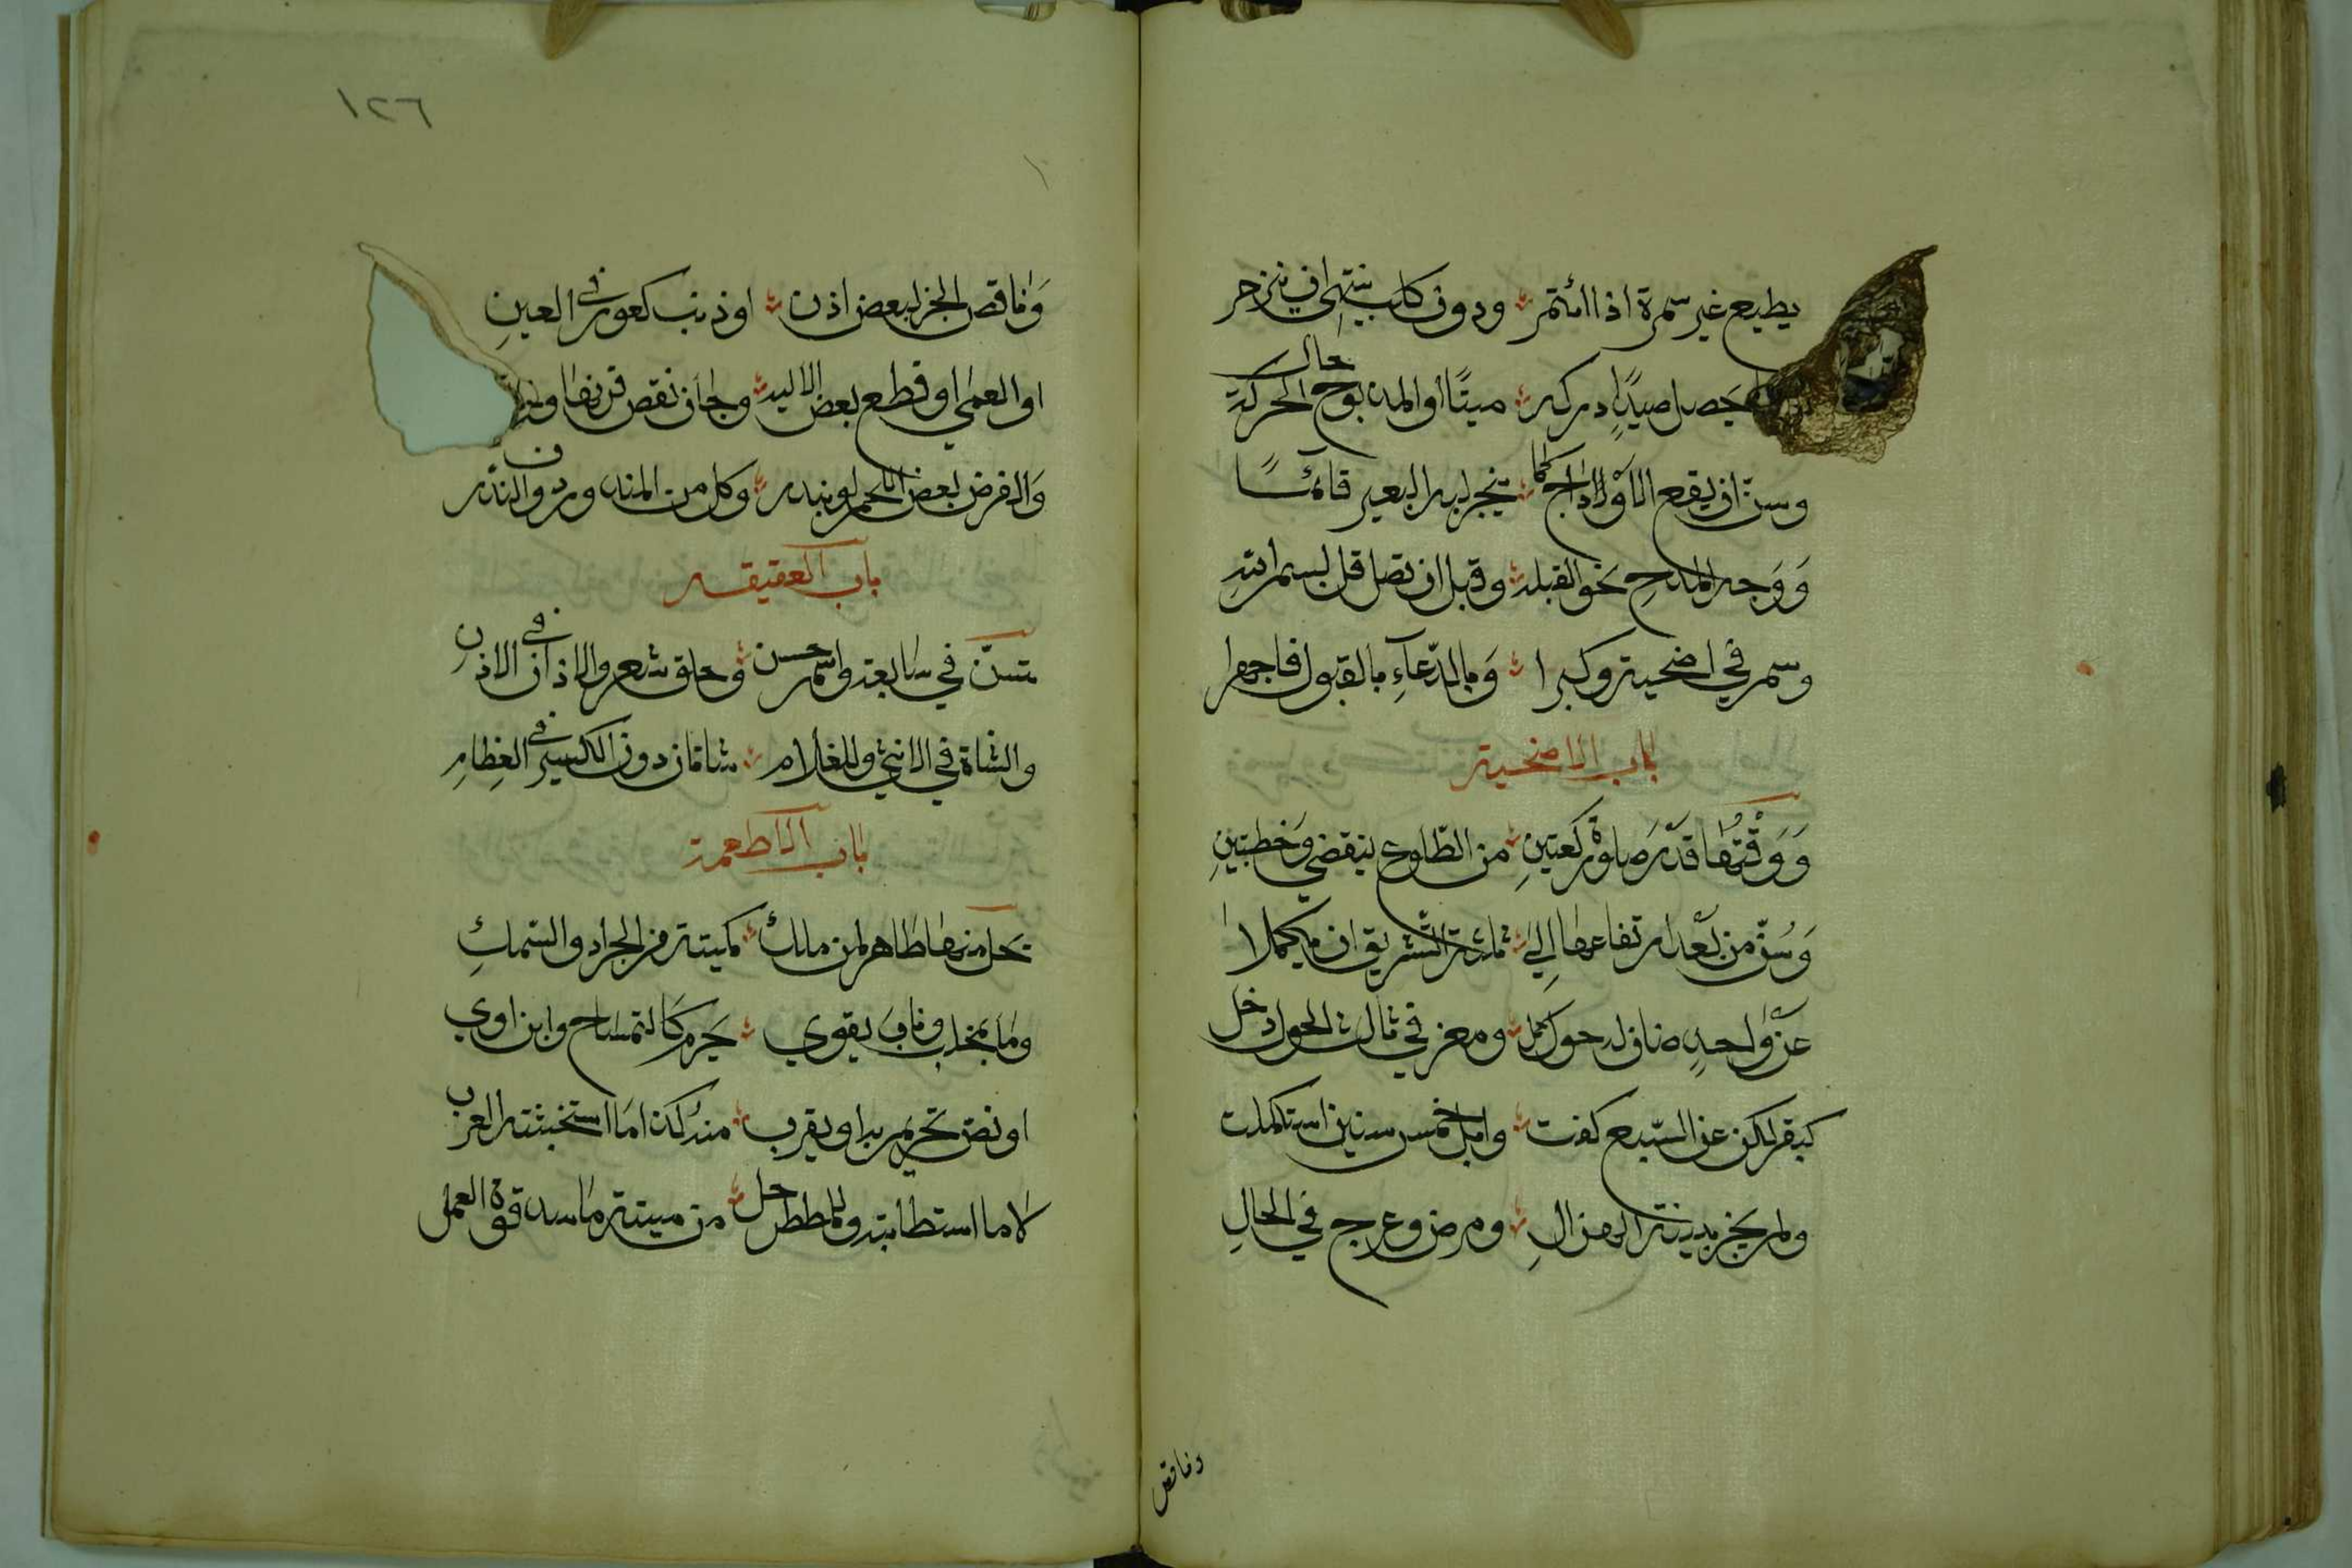 يطيع غير مرة اذا ائتمر ودون كلب ينتهي ان ينزجر
يحصل صيدا ادركه ميتا او المذبوح حال الحركة
وسن ان يقطع الاوداج كما ينحر لبة البعير قائما
وَوَجه المذبح نحو القبلة وقبل ان تصل قل بسم الله
وسم في اضحية وكبرا وَبالدّعآءِ بالقبول فاجهرا
باب الاضحية
وَوَقْتُها قَدْرَ صلوة ركعتينِ من الطّلوع ينقضي وَخطبتينِ
وَسُنّ من بَعْد ارتفاعها اِلى ثلثة التّشريق ان يكملا
عَنْ واحدٍ ضان له حول كمل ومعز في ثالث الحول دخل
كبقر لكن عن السّبع كفت وابل خمس سنين استكملت
ولم يجز بينة الهزالِ ومرض وعرج في الحالِ
وناقص
١٢٦
وَناقص الجزء لبعض اذن او ذنب كعور في العينِ
او العمى او قطع بعض الالية وجاز نقص قرنها
وَالفرض بعض اللحم لو بنذر وكل من المندوب دون النذر
باب العقيقة
تسنّ في سابعه واسم حسن وحلق شعر والاذان في الاذنِ
والشاة في الانثى وللغلام شاتان دون الكسر في العِظامِ
باب الاطعمة
يحل منها طاهر لمن ملك كميتة من الجراد والسّمكِ
وما بمخلب وناب يقوي يحرم كالتمساح وابن اوي
او نصّ تحريم به او يقرب منه كذا ما استخبثته العرب
لا ما استطابته وللمضطر حل من ميتة ما سد قوة العمل